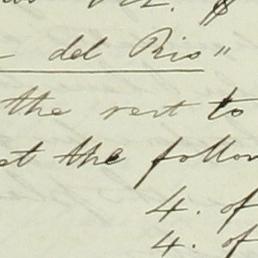 del Rio"
the rest to
the follow
4. of
4. of